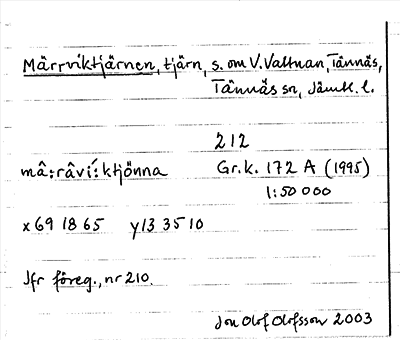 Märrviktjärnen, tjärn, s. om V. Valtnan, Tännäs,
Tännäs sn, Jämtl. l.
212
mâ:râví:ktjönna Gr.k. 172 A (1995)
1:50 000
x 69 18 65 y 13 35 10
Jfr föreg., nr 210.
Jon Olof Olofsson 2003